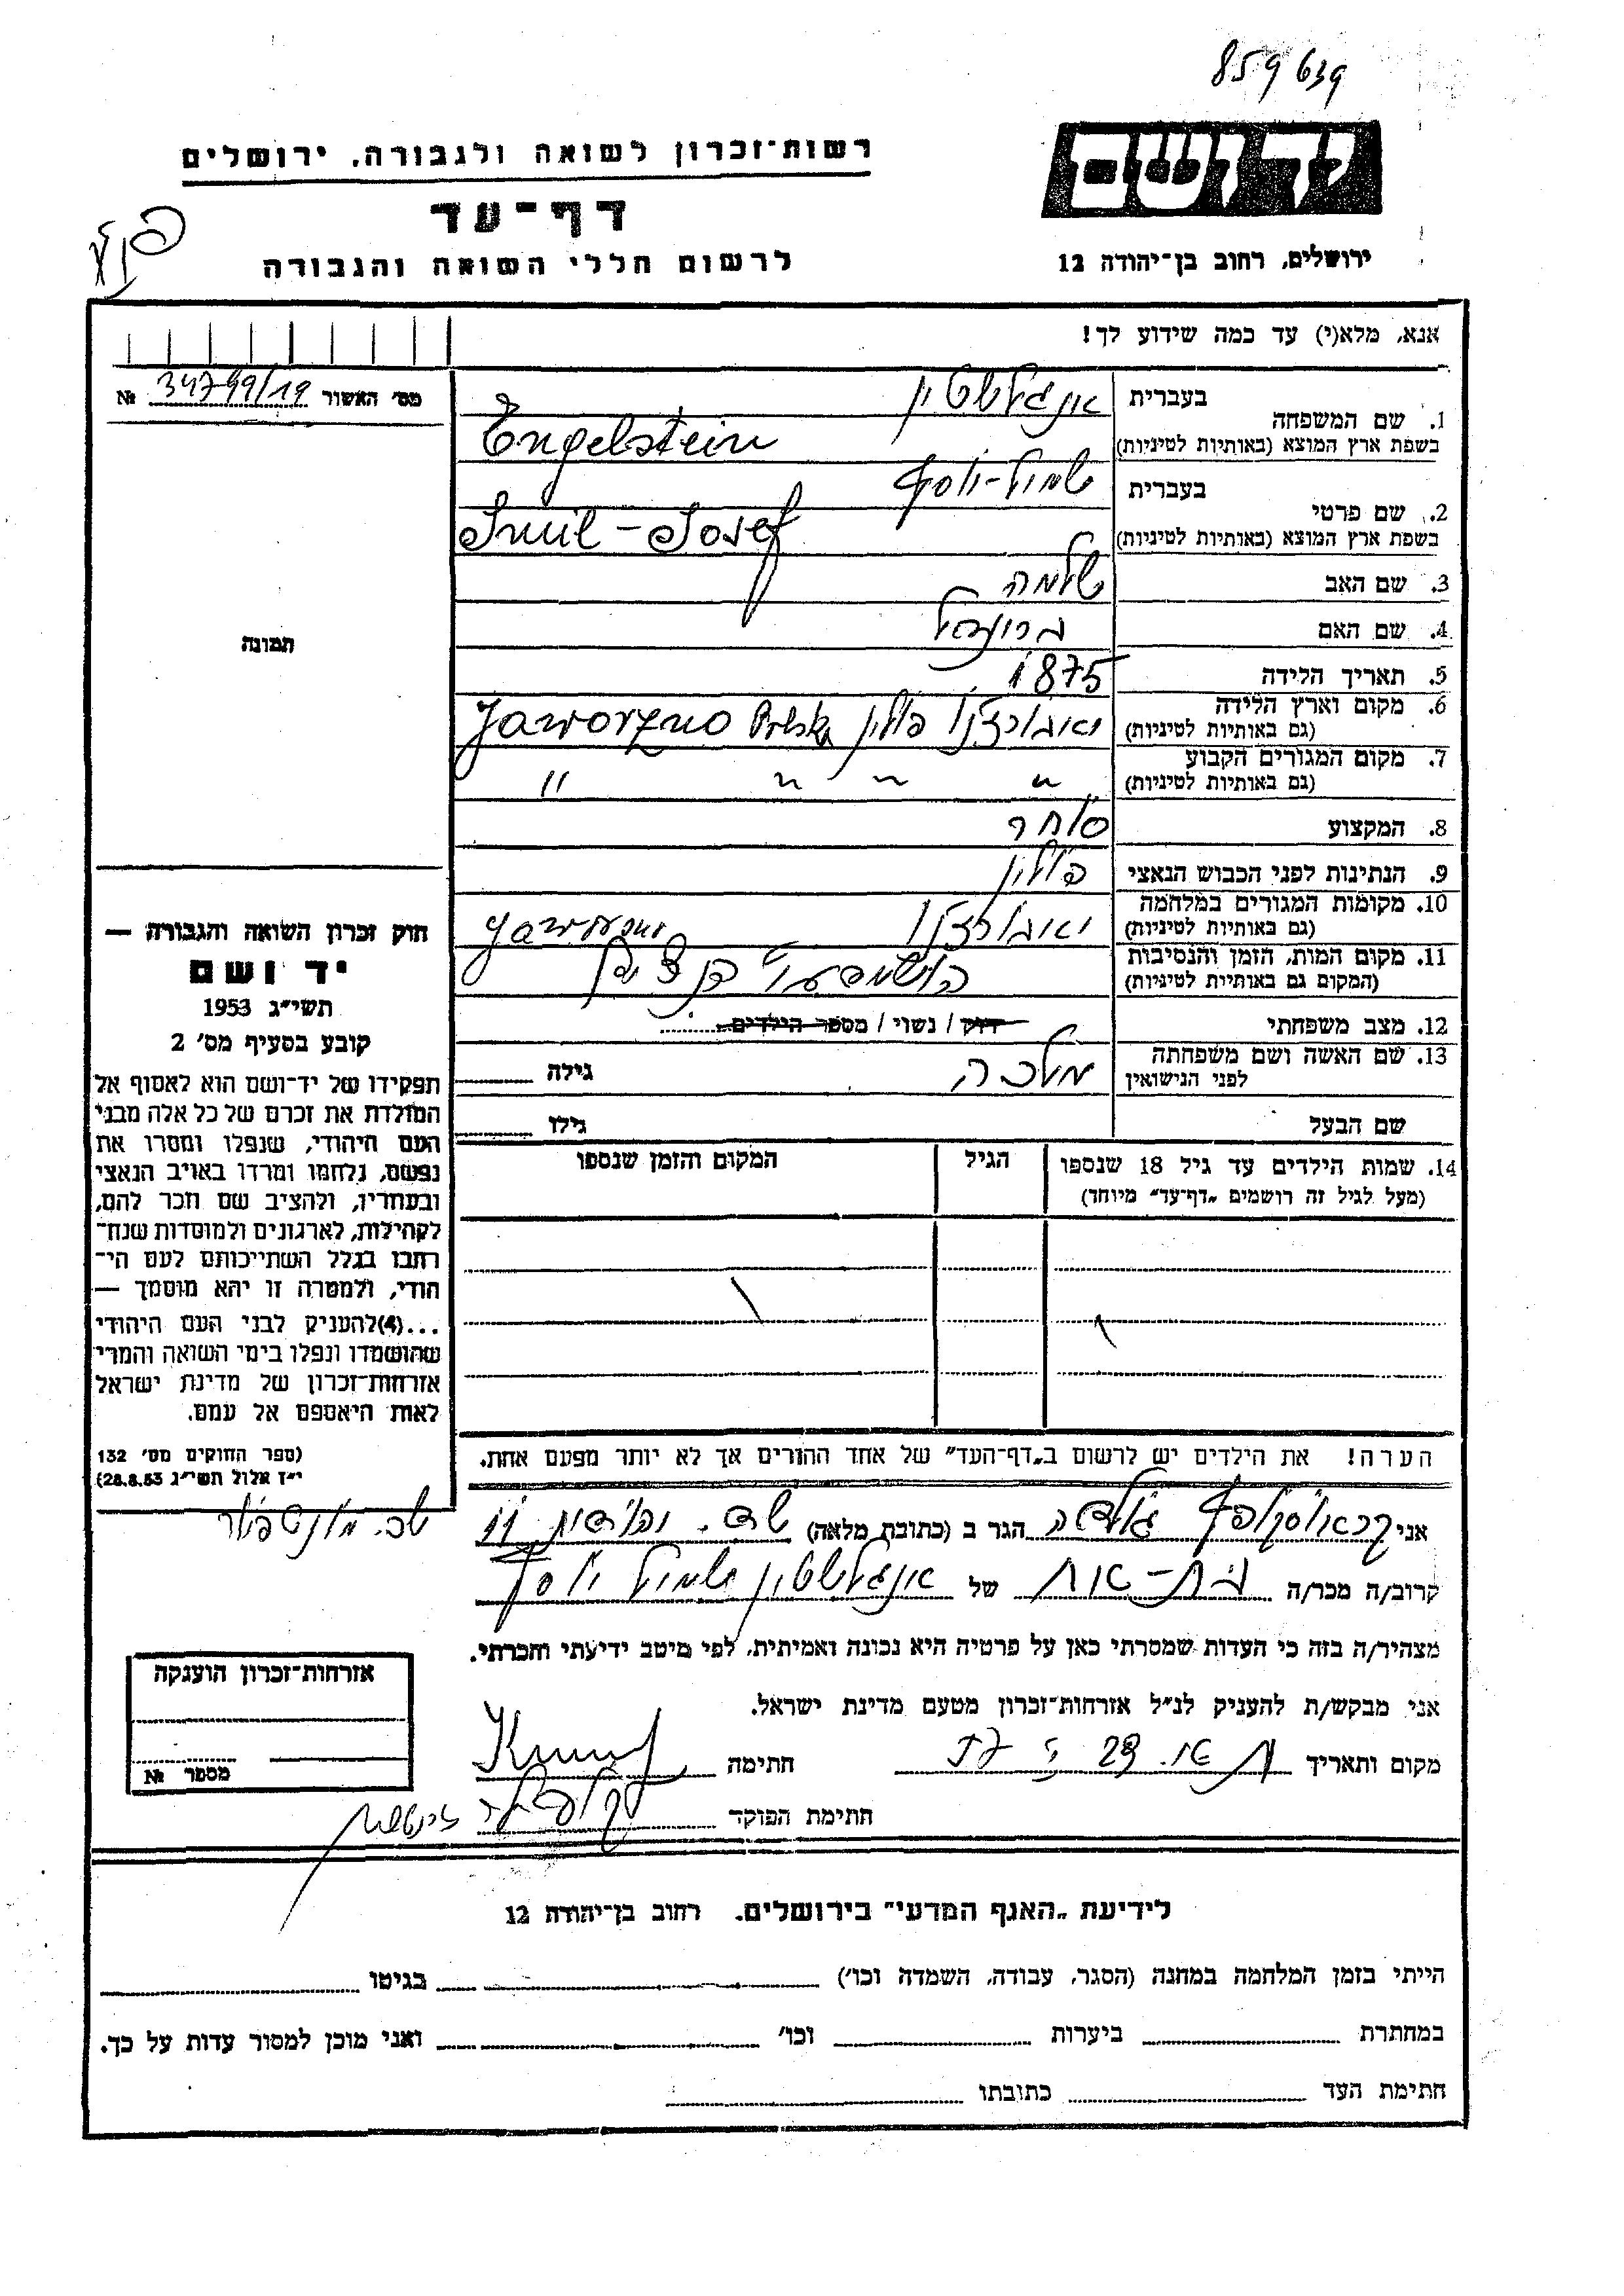 859639
יד ושם
רשות־זכרון לשואה ולגבורה, ירושלים
דף־עד
לרשום חללי השואה והגבורה
ירושלים, רחוב בן־יהודה 12
אנא, מלא(י) עד כמה שידוע לך!
מס׳ האשור 34799/19 №
1. שם המשפחה בעברית אנגלשטין
בשפת ארץ המוצא (באותיות לטיניות) Engelstein
2. שם פרטי בעברית שמיל-יוסף
בשפת ארץ המוצא (באותיות לטיניות) Smil-Josef
3. שם האב שלמה
4. שם האם
5. תאריך הלידה 1875
6. מקום וארץ הלידה (גם באותיות לטיניות) יאבורזנו פולין Jaworzno Polska
7. מקום המגורים הקבוע (גם באותיות לטיניות) " " " "
8. המקצוע סוחר
9. הנתינות לפני הכבוש הנאצי פולין
10. מקומות המגורים במלחמה (גם באותיות לטיניות) יאבורזנו
11. מקום המות, הזמן והנסיבות
(המקום גם באותיות לטיניות)
12. מצב משפחתי רווק / נשוי / מספר הילדים
13. שם האשה ושם משפחתה לפני הנישואין מלכה גילה
שם הבעל גילו
14. שמות הילדים עד גיל 18 שנספו הגיל המקום והזמן שנספו
(מעל לגיל זה רושמים „דף־עד״ מיוחד)
הערה! את הילדים יש לרשום ב„דף־העד״ של אחד ההורים אך לא יותר מפעם אחת.
תמונה
חוק זכרון השואה והגבורה —
יד ושם
תשי״ג 1953
קובע בסעיף מס׳ 2
תפקידו של יד־ושם הוא לאסוף אל
המולדת את זכרם של כל אלה מבני
העם היהודי, שנפלו ומסרו את
נפשם, נלחמו ומרדו באויב הנאצי
ובעוזריו, ולהציב שם וזכר להם,
לקהילות, לארגונים ולמוסדות שנח־
רבו בגלל השתייכותם לעם הי־
הודי, ולמטרה זו יהא מוסמך —
...(4)להעניק לבני העם היהודי
שהושמדו ונפלו בימי השואה והמרי
אזרחות־זכרון של מדינת ישראל
לאות היאספם אל עמם.
(ספר החוקים מס׳ 132
י״ז אלול תשי״ג 28.8.53)
אני גולדה הגר ב (כתובת מלאה)
קרוב/ה מכר/ה בת-אח של אנגלשטין שמיל יוסף
מצהיר/ה בזה כי העדות שמסרתי כאן על פרטיה היא נכונה ואמיתית, לפי מיטב ידיעתי והכרתי.
אני מבקש/ת להעניק לנ״ל אזרחות־זכרון מטעם מדינת ישראל.
מקום ותאריך חתימה
חתימת הפוקד
אזרחות־זכרון הוענקה
מספר №
לידיעת „האגף המדעי״ בירושלים. רחוב בן־יהודה 12
הייתי בזמן המלחמה במחנה (הסגר, עבודה, השמדה וכו׳) בגיטו
במחתרת ביערות וכו׳ ואני מוכן למסור עדות על כך.
חתימת העד כתובתו